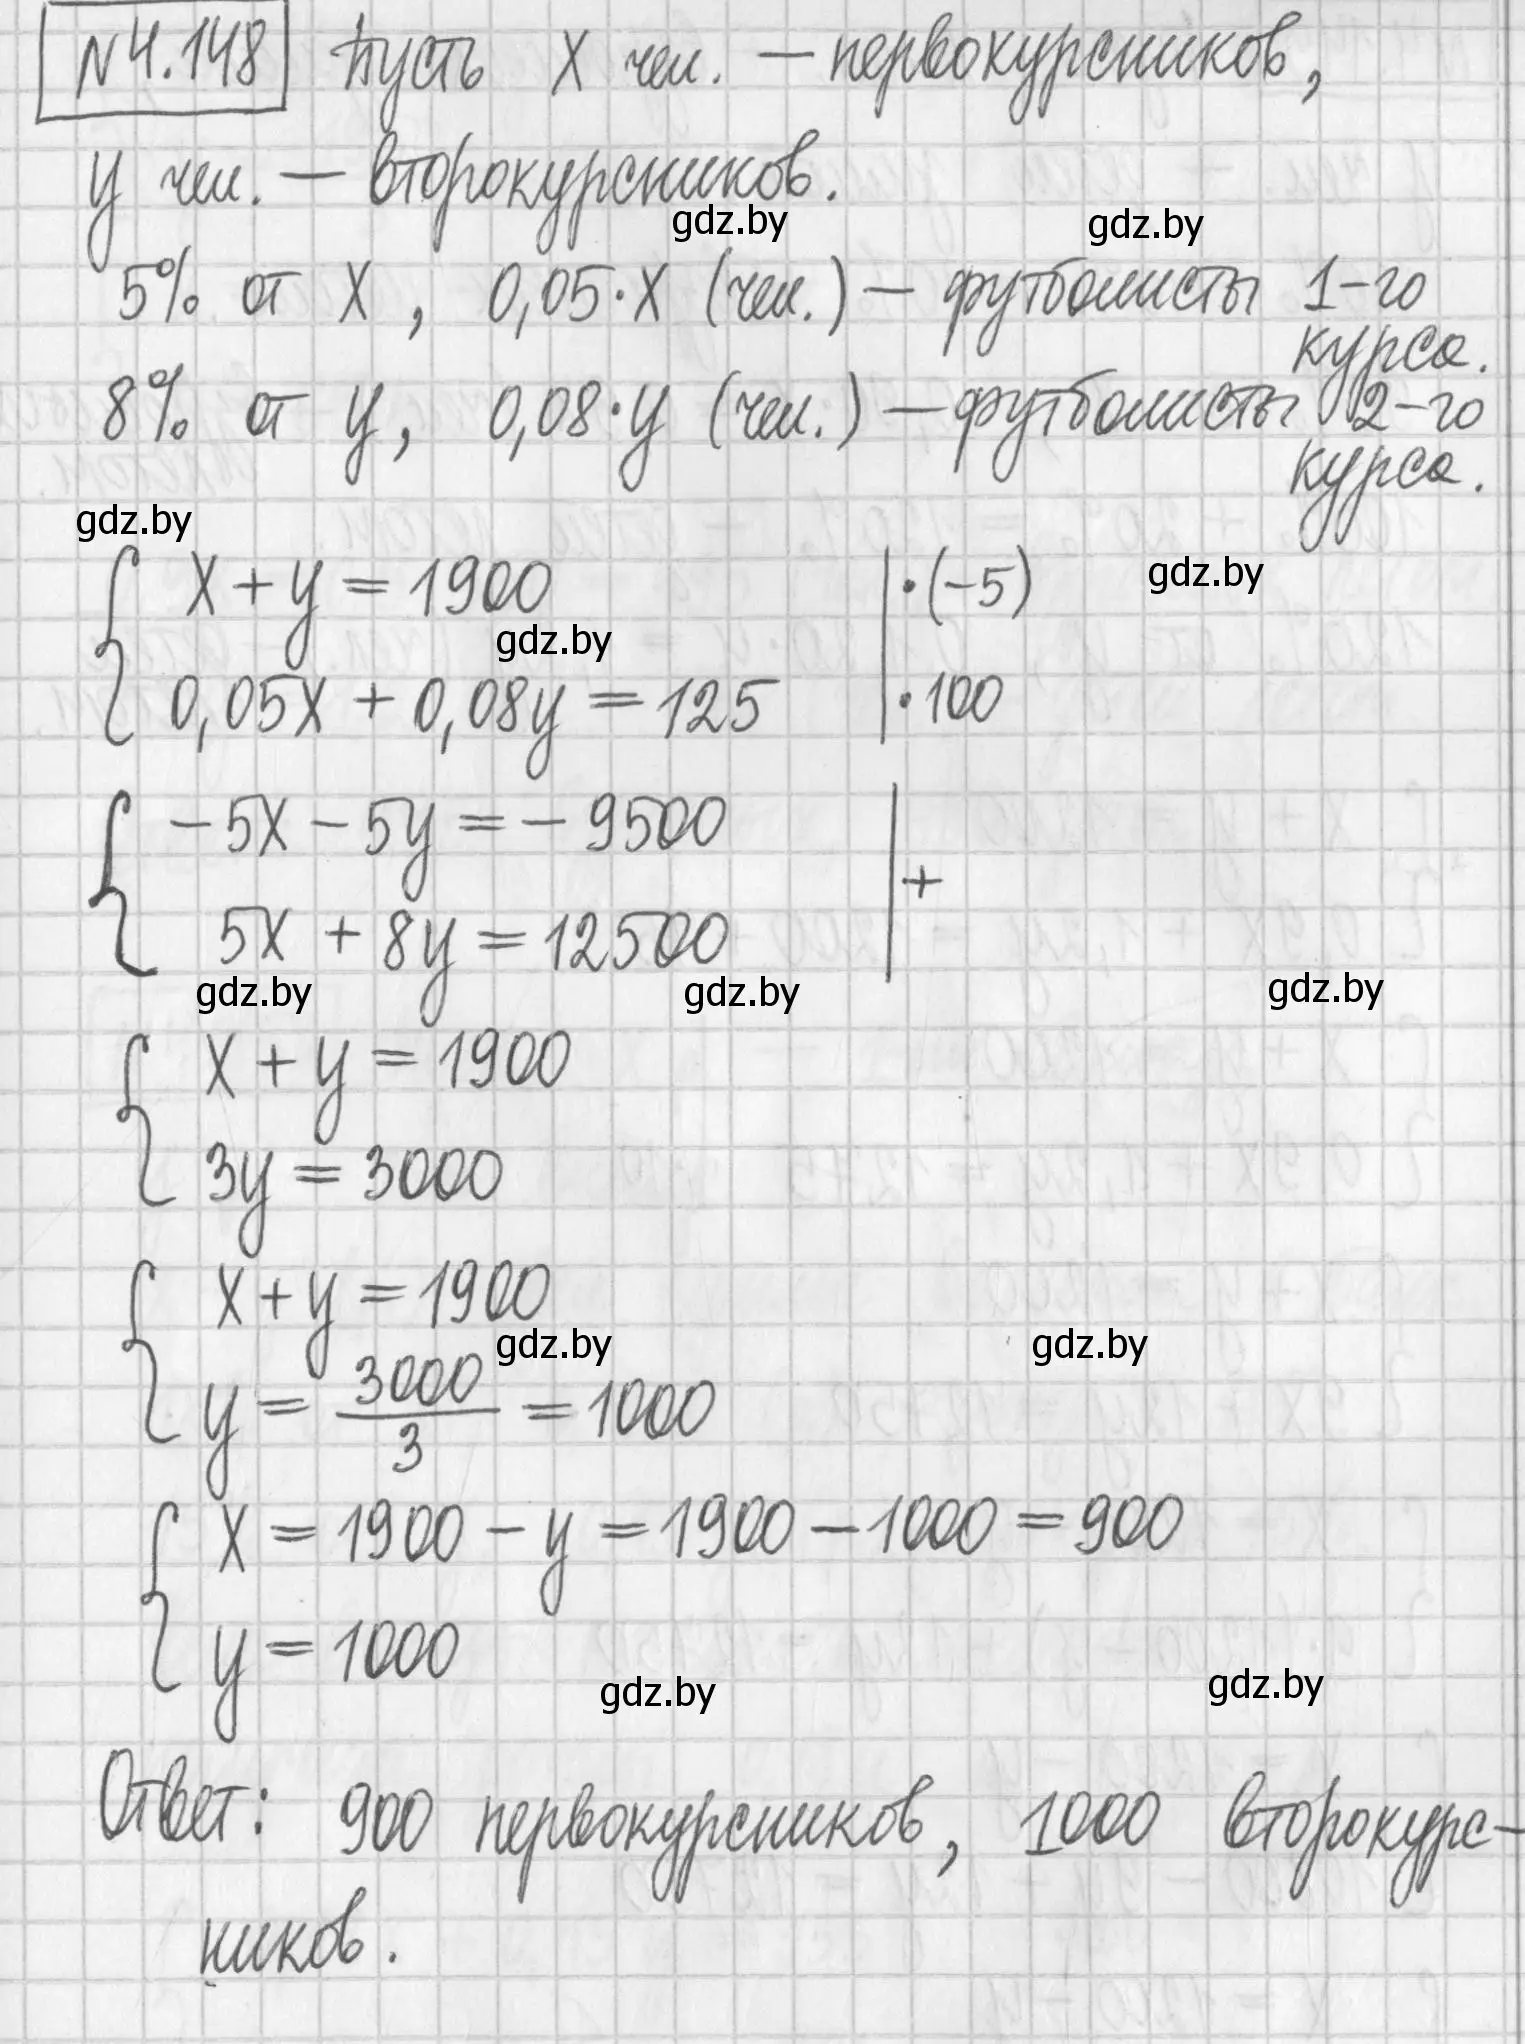 №4.148 Пусть x чел. — первокурсников,
y чел. — второкурсников.
gdz.by gdz.by
5% от x, 0,05·x (чел.) — футболисты 1-го
курса.
8% от y, 0,08·y (чел.) — футболисты 2-го
курса.
gdz.by
x + y = 1900 |·(-5) gdz.by
gdz.by
0,05x + 0,08y = 125 |·100
-5x - 5y = -9500
+
5x + 8y = 12500
gdz.by gdz.by gdz.by
x + y = 1900
3y = 3000
x + y = 1900
gdz.by gdz.by
y = 3000/3 = 1000
x = 1900 - y = 1900 - 1000 = 900
y = 1000
gdz.by gdz.by
Ответ: 900 первокурсников, 1000 второкурс-
ников.